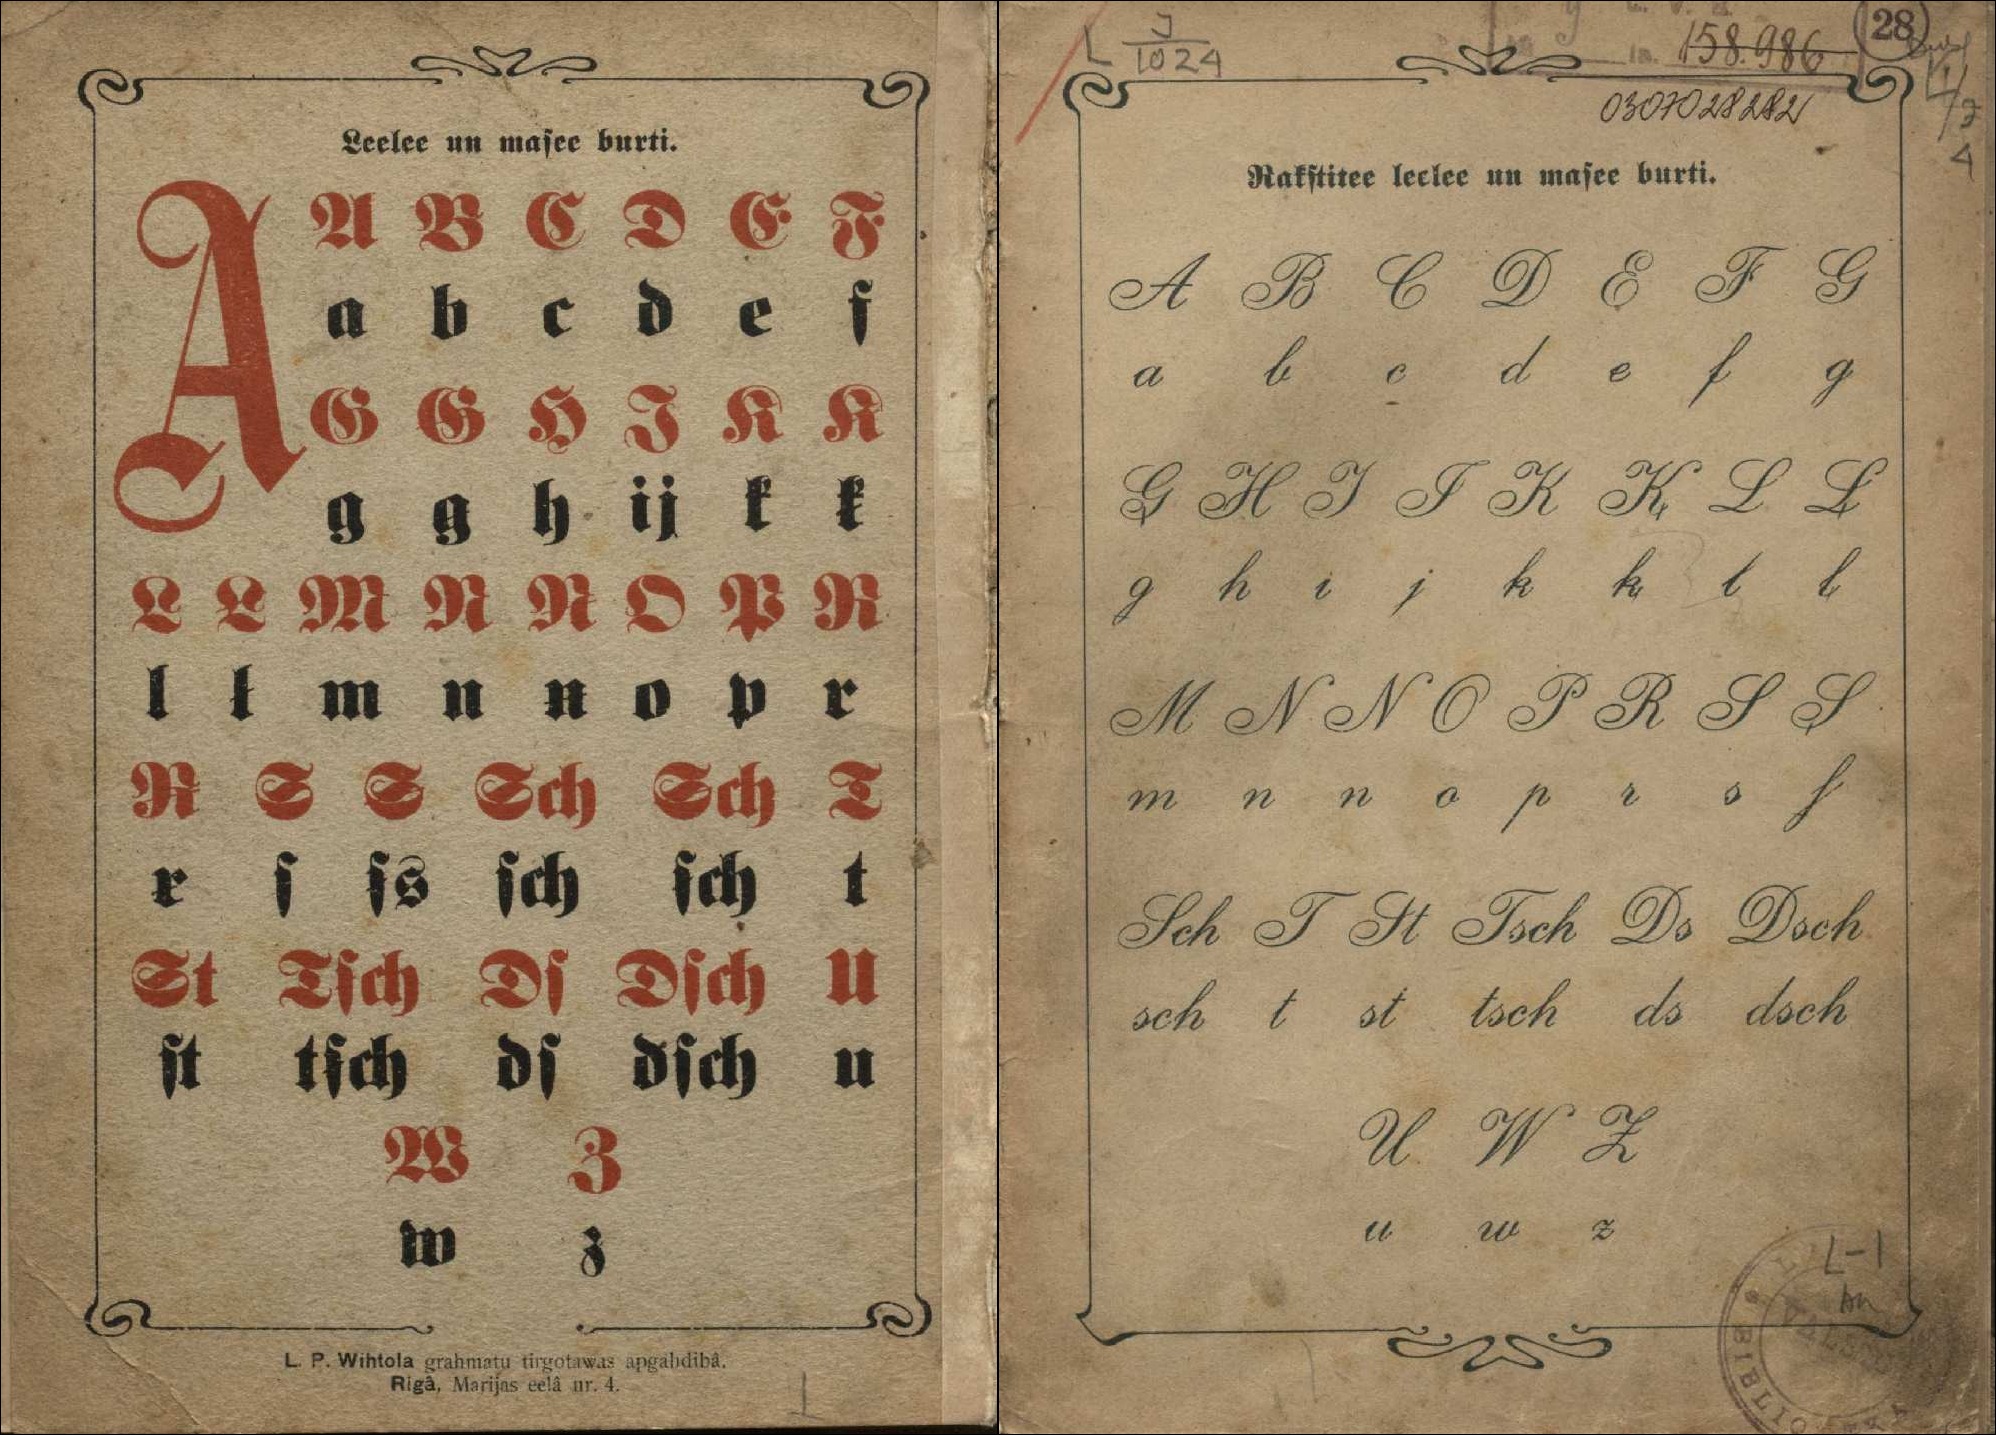 Leelee un maſee burti.
A
A B C D E F
a b c d e f
G Ꞡ H I K Ꞣ
g ꞡ h i j k ꞣ
L Ł M N Ꞥ O P R
l ł m n ꞥ o p r
Ꞧ S Ꞩ Sch Ꞩch T
ꞧ ſ ſs ſch ẜch t
St Tſch Dſ Dſch U
ſt tſch dſ dſch u
W Z
w z
L. P. Wihtola grahmatu tirgotawas apgahdibâ.
Rigâ, Marijas eelâ nr. 4.
J
1024
158.986
28
0307028282
Rakſtitee leelee un maſee burti.
A B C D E F G
a b c d e f g
Ꞡ H I J K Ķ L Ļ
g h i j k ķ l ļ
M N N O P R S Ꞩ
m n n o p r s ſ
Sch T St Tsch Ds Dsch
sch t st tsch ds dsch
U W Z
u w z
L-1